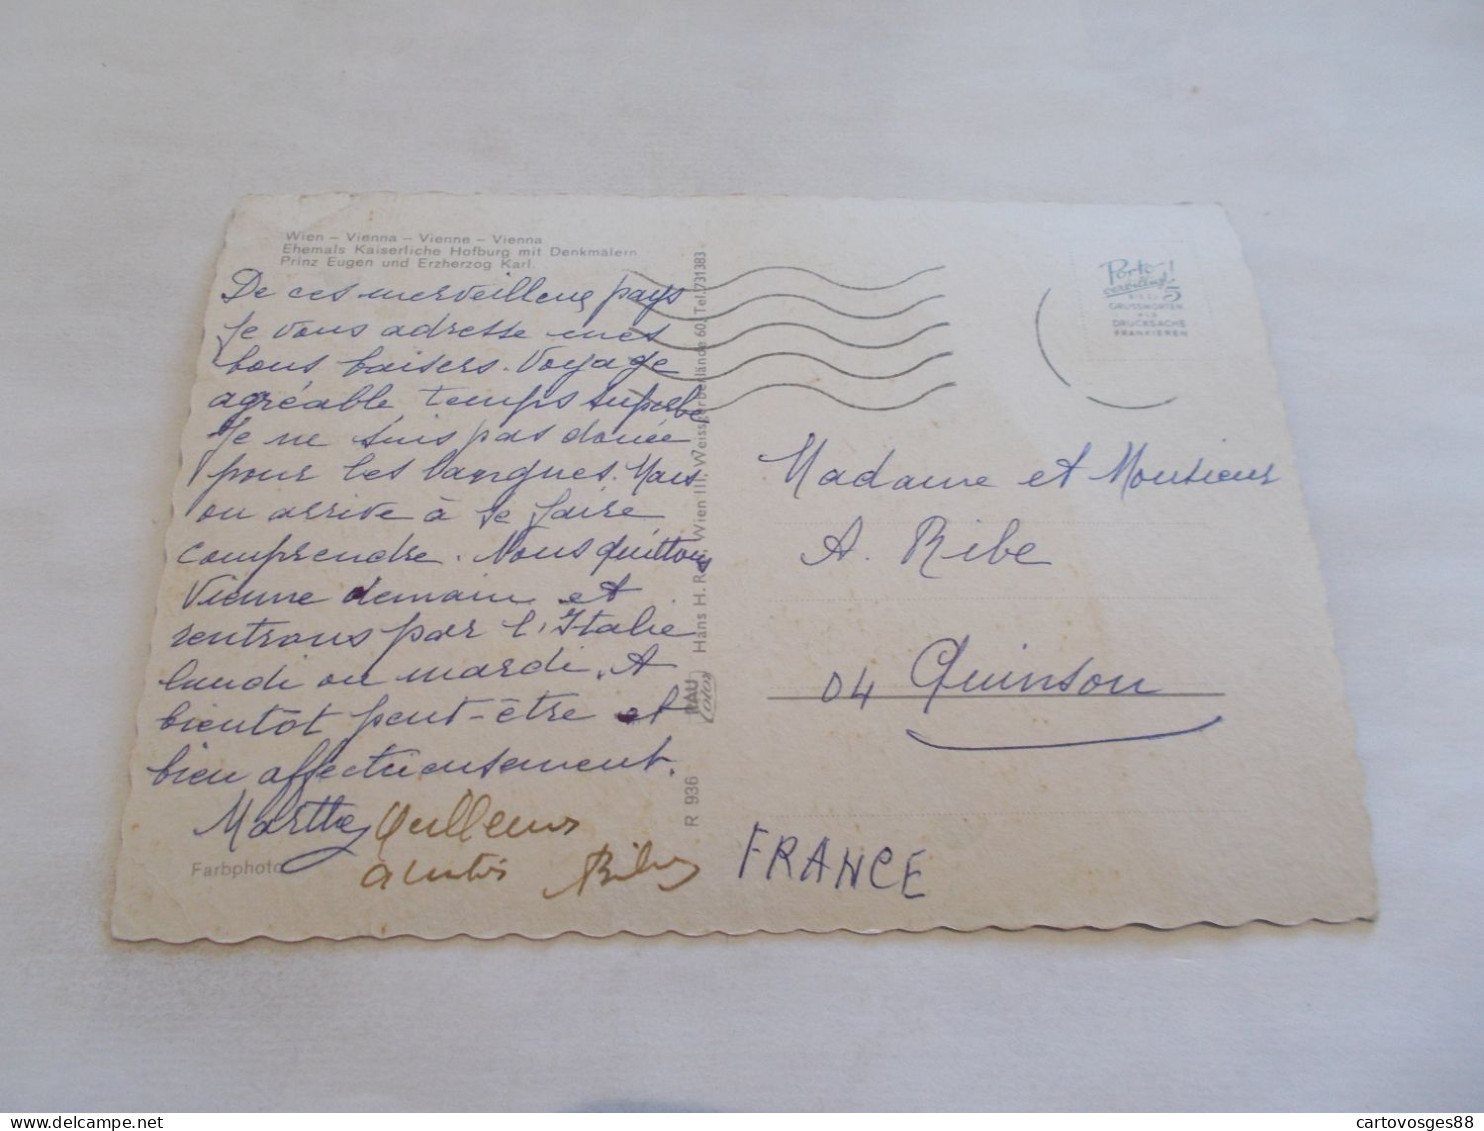 Wien – Vienna – Vienne – Vienna
Ehemals Kaiserliche Hofburg mit Denkmälern
Prinz Eugen und Erzherzog Karl.
De ces merveilleux pays
Je vous adresse mes
bons baisers. Voyage
agréable temps superbe
Je ne suis pas douée
pour les langues. Mais
on arrive à se faire
comprendre. Nous quittons
Vienne demain et
rentrons par l'Italie
lundi ou mardi. A
bientôt peut-être et
bien affectueusement.
Marthe
Farbphoto
R 936
RAU
Hans H. Rau, Wien III, Weissgerberlände 60, Tel. 731383
Porto
bis zu
5
GRUSSWORTEN
ALS
DRUCKSACHE
FRANKIEREN
Madame et Monsieur
A. Ribe
04 Quinson
FRANCE
cartovosges88